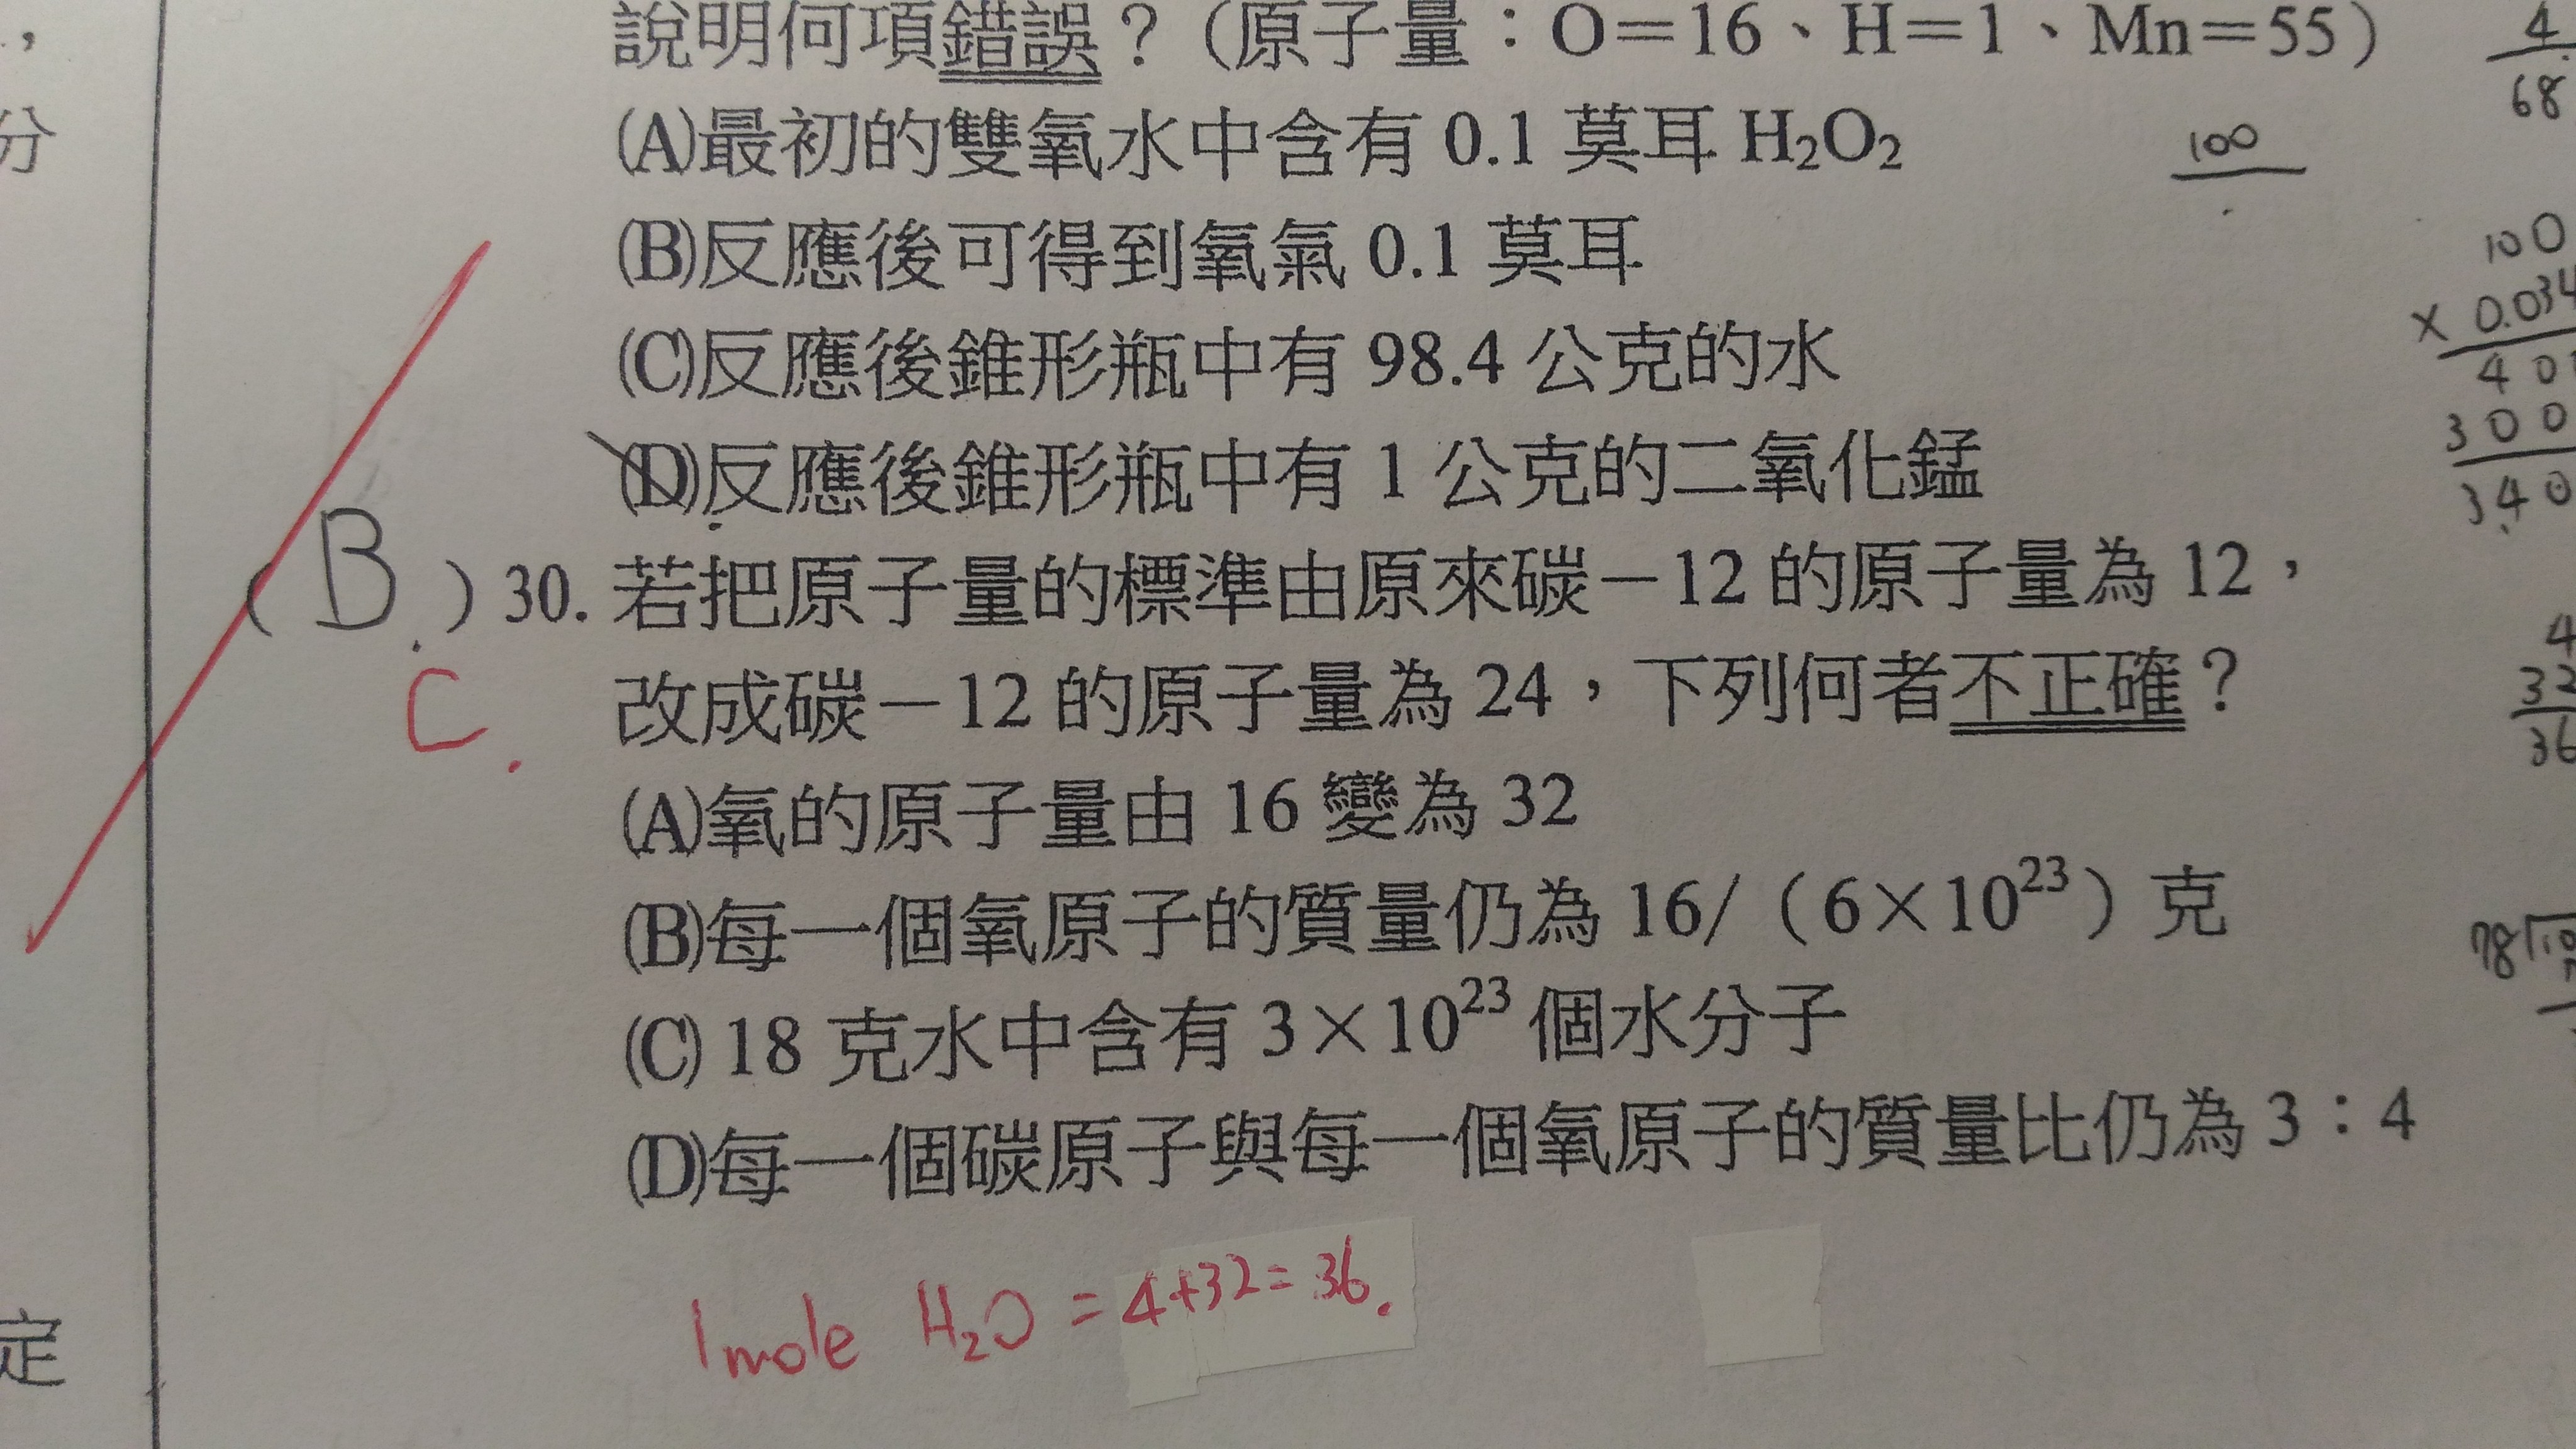 ，
分
定
說明何項錯誤？（原子量：O＝16、H＝1、Mn＝55）
(A)最初的雙氧水中含有 0.1 莫耳 H₂O₂
(B)反應後可得到氧氣 0.1 莫耳
(C)反應後錐形瓶中有 98.4 公克的水
(D)反應後錐形瓶中有 1 公克的二氧化錳
（B.）30. 若把原子量的標準由原來碳－12 的原子量為 12，
C.
改成碳－12 的原子量為 24，下列何者不正確？
(A)氧的原子量由 16 變為 32
(B)每一個氧原子的質量仍為 16/（6×10²³）克
(C) 18 克水中含有 3×10²³ 個水分子
(D)每一個碳原子與每一個氧原子的質量比仍為 3：4
1mole H₂O = 4+32=36.
4
68
100
100
× 0.034
40
300
340
4
32
36
78